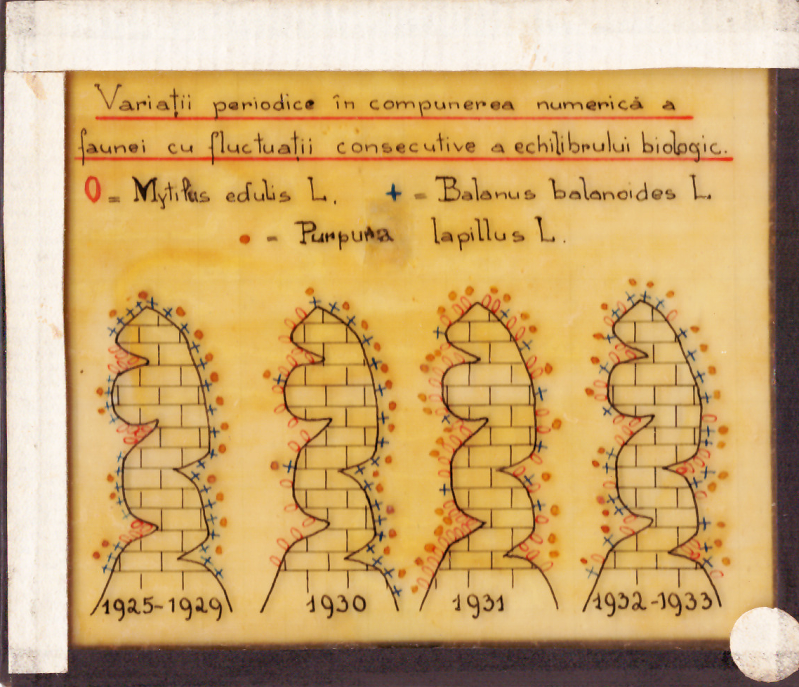 Variații periodice în compunerea numerică a
faunei cu fluctuații consecutive a echilibrului biologic.
0 = Mytilus edulis L. + = Balanus balanoides L
• = Purpura lapillus L.
1925-1929 1930 1931 1932-1933